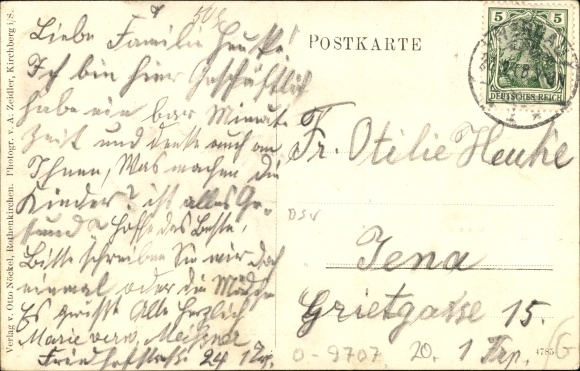 Liebe Familie Heuske!
Ich bin hier Geschäftlich
habe ein bar Minut.
Zeit und denke auch an
Ihnen, Was machen die
Kinder? ist alles Ge-
sund? Hoffe das Beste,
Bitte schreiben Sie mir doch
einmal oder die Mädch
Es grüsst Alle Herzlich
Marie verw. Meissner
Friedhofstrasse 24 1
POSTKARTE
5 5
DEUTSCHES REICH
Fr. Otilie Heuske
DSV
Jena
Grietgasse 15.
1 Trp.
0-9707
20.
4785
Verlag v. Otto Nöckel, Rothenkirchen. Photogr. v. A. Zeidler, Kirchberg i/S.